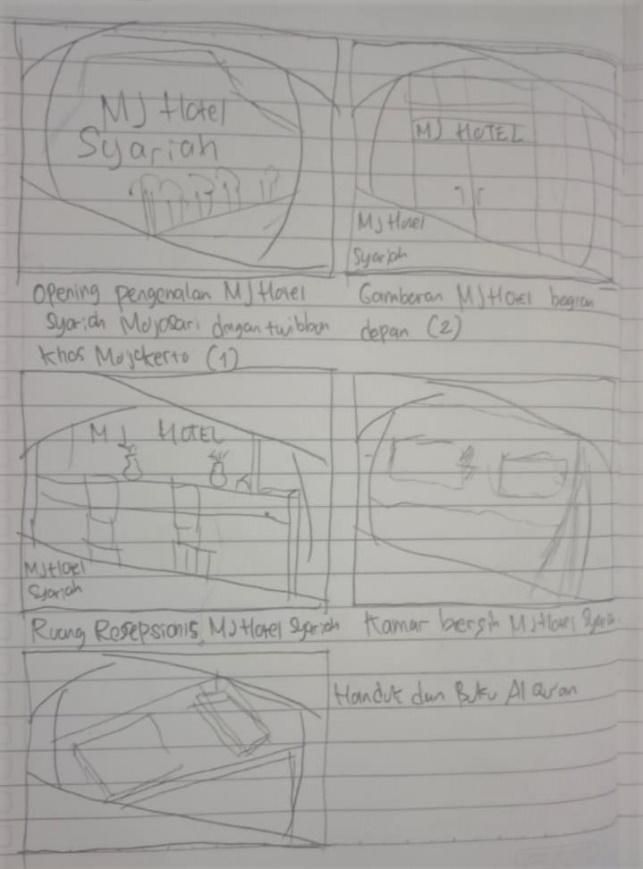 MJ Hotel
Syariah
MJ HOTEL
MJ Hotel
Syariah
Opening pengenalan MJ Hotel
Syariah Mojosari dengan twibbon
khas Mojokerto (1)
Gambaran MJ Hotel bagian
depan (2)
MJ HOTEL
MJ Hotel
Syariah
Ruang Resepsionis MJ Hotel Syariah
Kamar bersih MJ Hotel
Handuk dan Buku Al Quran